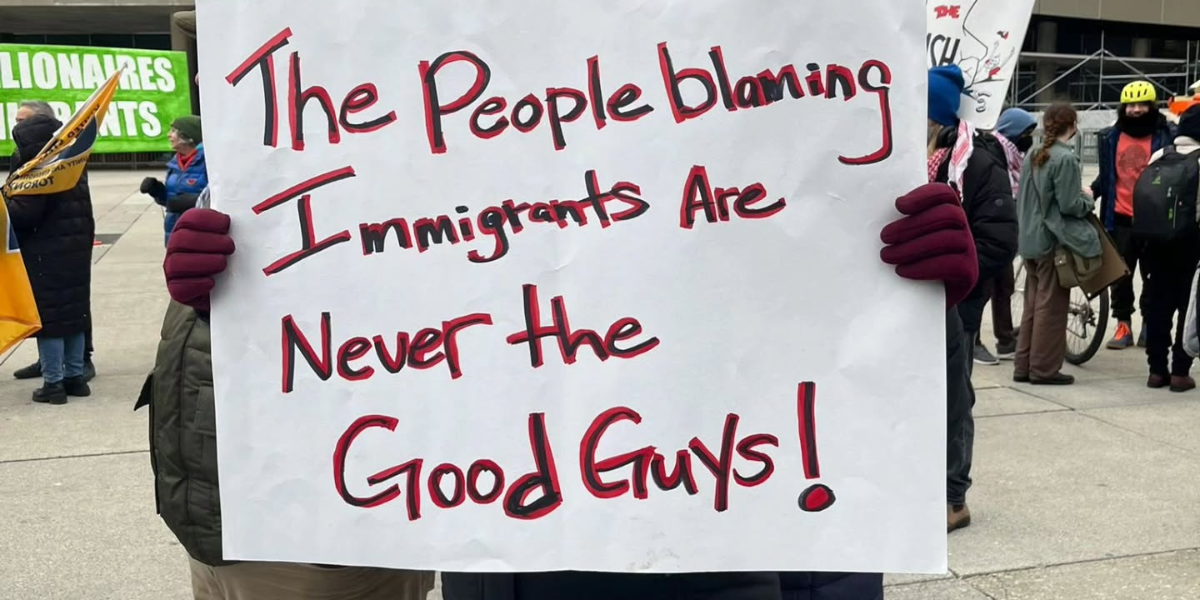 The People blaming
Immigrants Are
Never the
Good Guys!
LIONAIRES
ANTS
THE